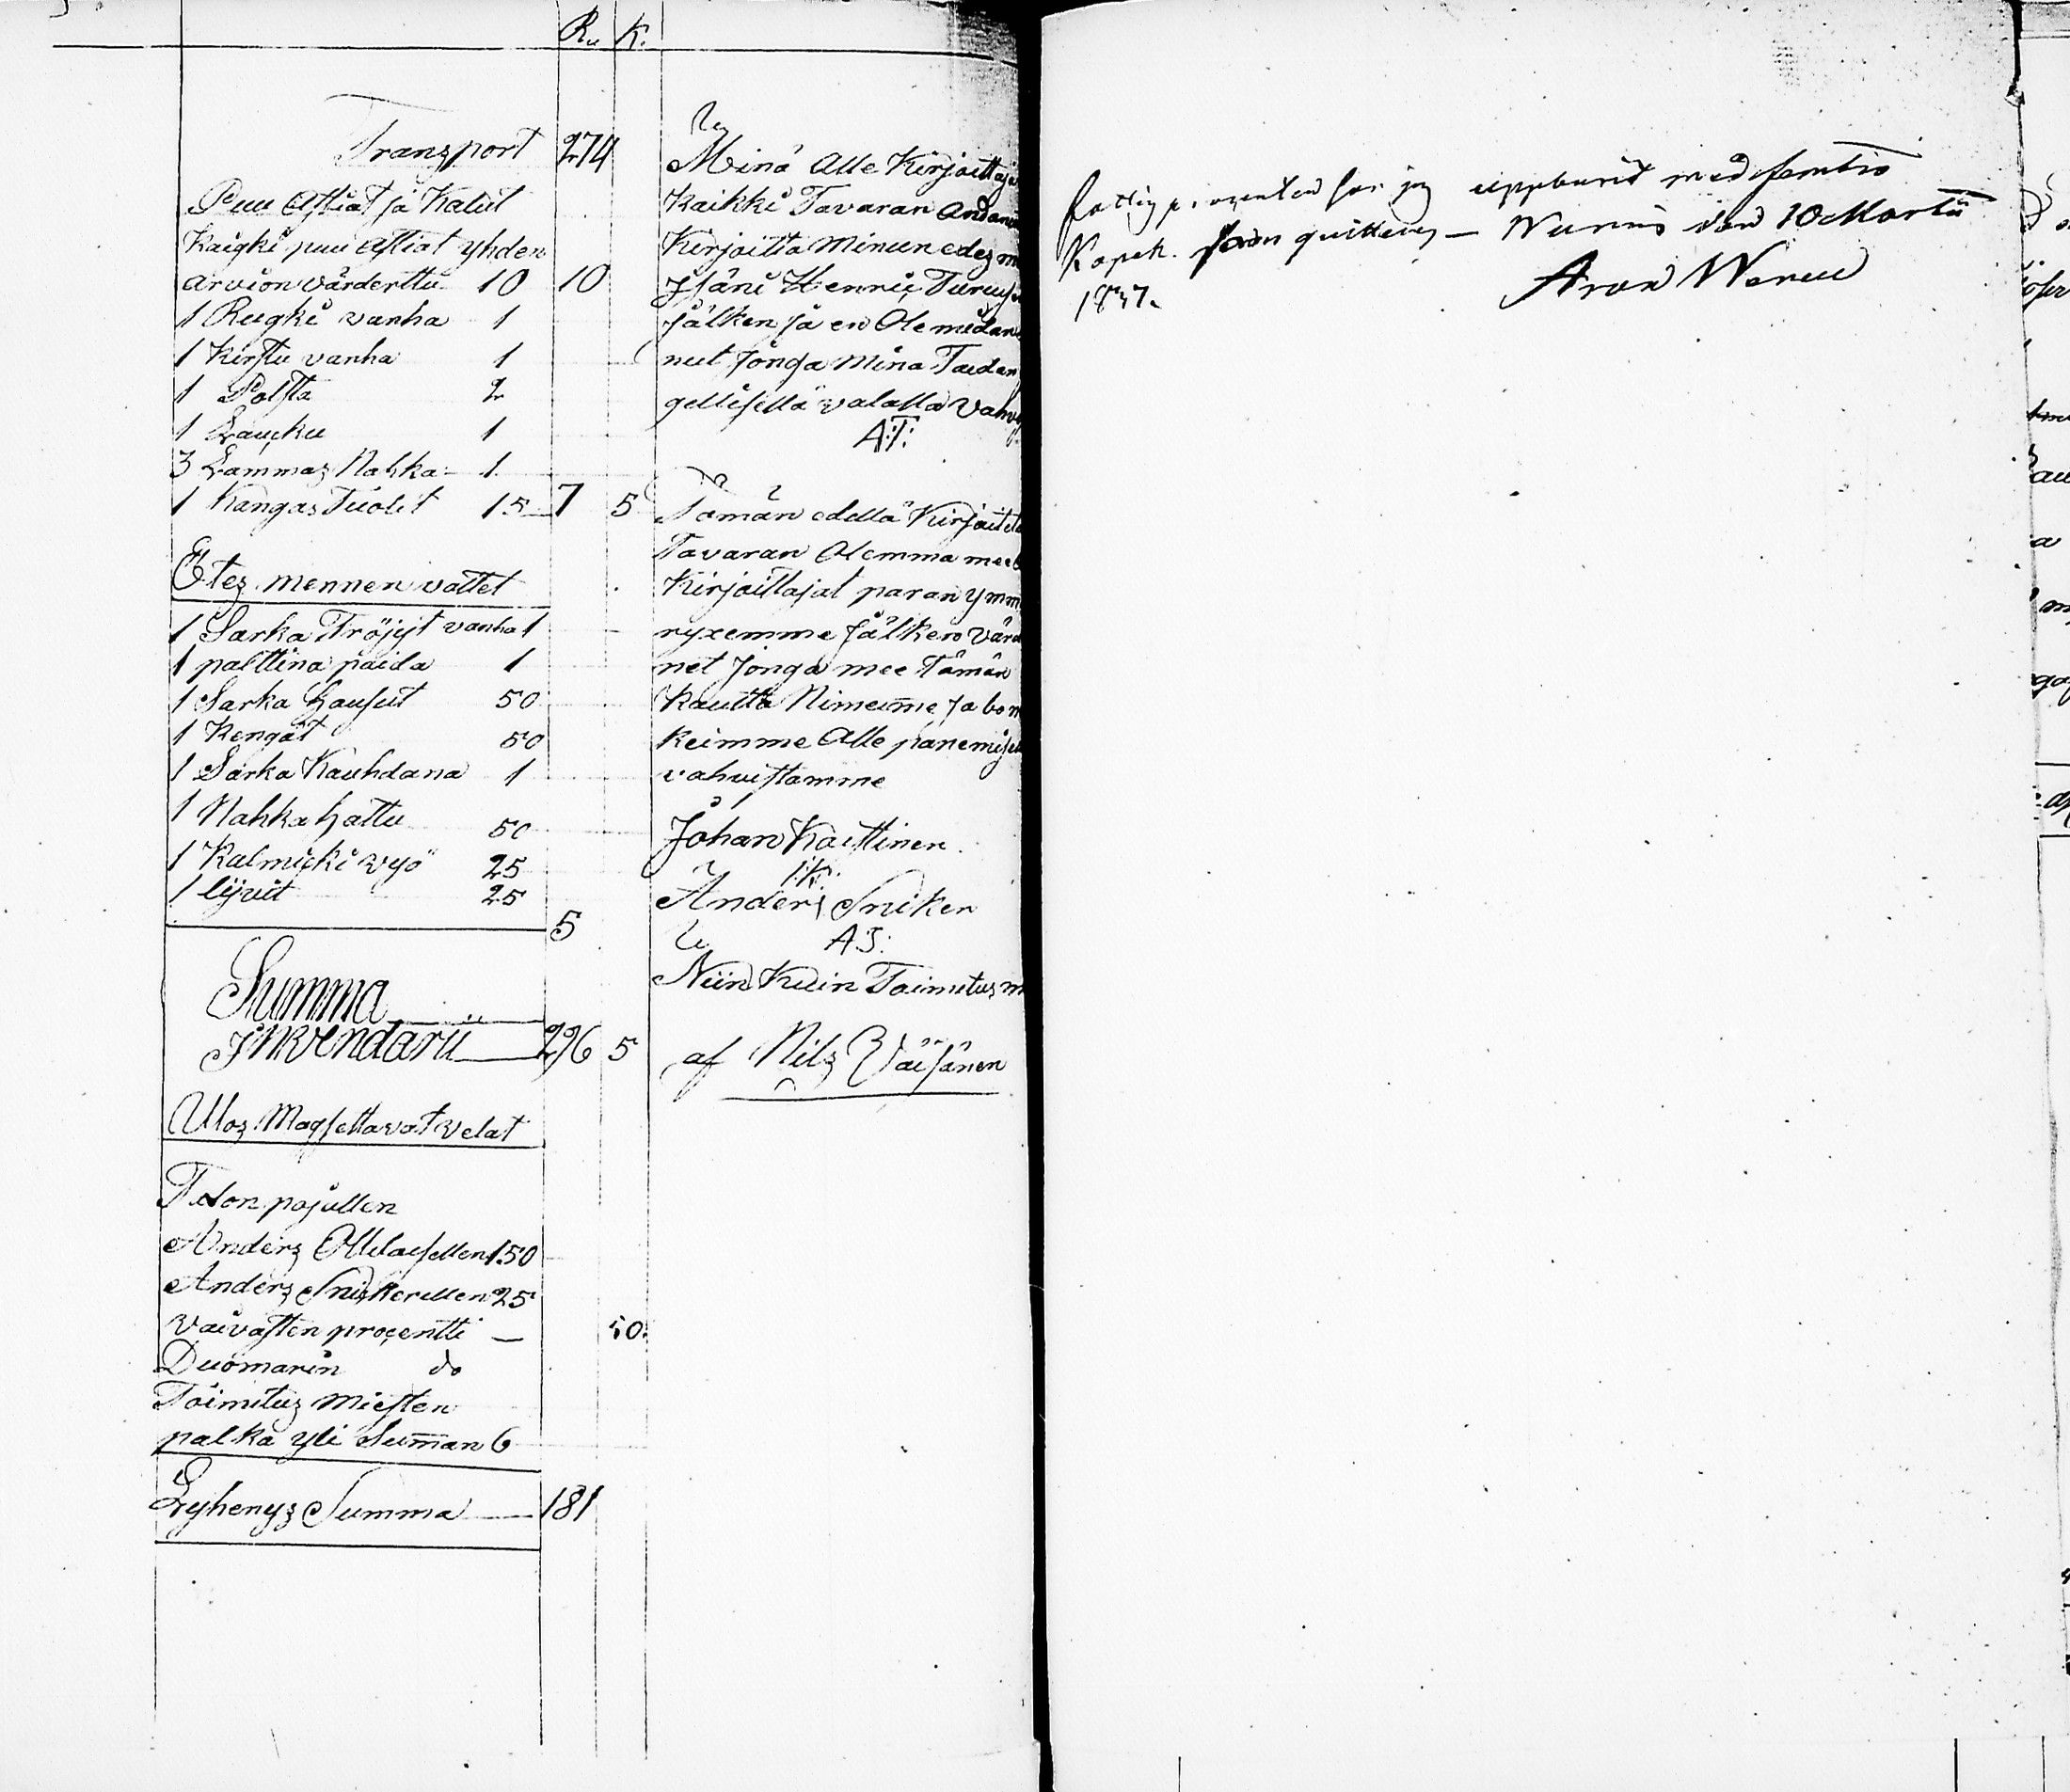 Ru K.
Transport 274
Puu Astiat ja Kalut
Kaigki puu Astiat yhden
arvion värderttu 10 10
1 Rugki vanha 1
1 Kirstu vanha 1
1 Polsta 2
1 Laucku 1
3 Lammaz Nahka 1
1 Kangas Tuolit 15 7 5
Etez mennen vattet
1 Sarka Tröjyt vanha 1
1 palttina paida 1
1 Sarka Housut 50
1 Kengät 50
1 Sarka Kauhdana 1
1 Nahka hattu 50
1 Kalmicki vyö 25
1 lijvit 25
5
Summa
Inventarii 296 5
Uloz Magsettavat velat
Talon pojallen
Anderz Ollilaisellen 150
Anderz Snikerillen 25
Vaivasten procentti — 50.
Duomarin do
Toimituz Miesten
palka yli Summan 6
Lyhenyz Summa 181
Minä Alle Kirjoittaja
Kaikki Tavaran Andanu
Kirjoitta Minun edez m
Isäni Henric Turuse
Jälken ja en Ole midän
nut Jonga Mina Taidan
gellisellä valalla Vahvi
A.T.
Tämän edellä Kirjoitetu
Tavaran Olemma mee
Kirjoittajat paran ymm
ryxemme Jälken värd
net Jonga mee Tämän
Kautta Nimeime Ja bom
keimme Alle panemisel
vahvistamme
Johan Kaittinen
I.K.
Anders Sniker
A.S.
Niin Kuin Toimituz m
af Nilz Väisänen
Fattigprocenten har jag uppburit med femtio
Kopek. som quitteras — Nurmis den 10 Martii
1837.
Aron Weren